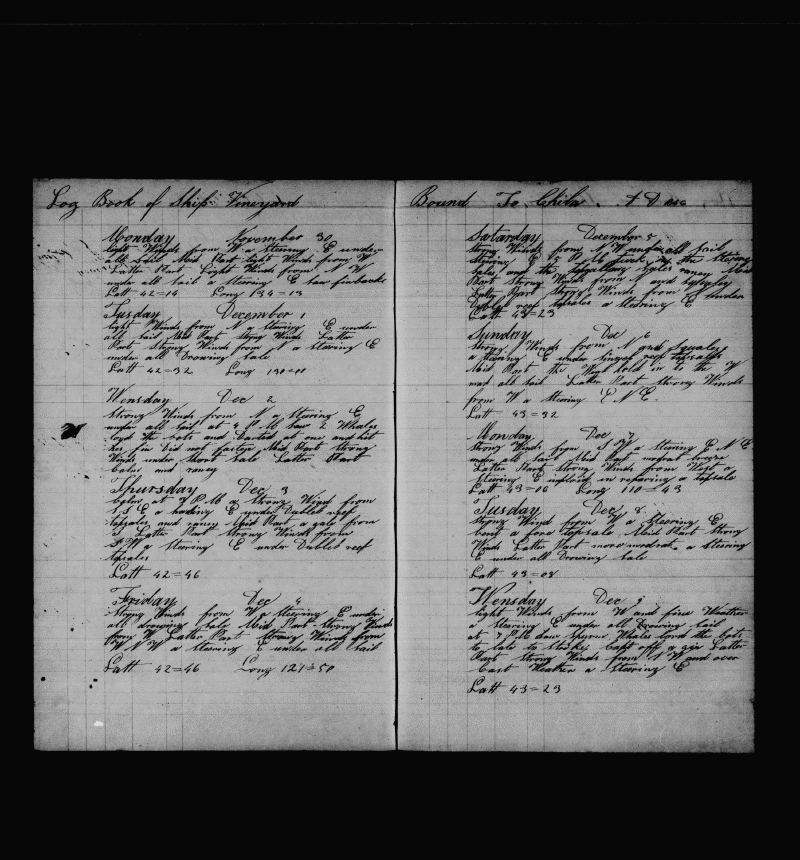 Log Book of Ship Vineyard
Monday November 30
light Winds from W Steering E under
all Sail Mid Part light Winds from W
Latter Part Light Winds from N W
under all Sail a Steering E saw finbacks
Latt 42=14 Long 134=13
Tusday December 1
light Winds from N a Steering E under
all Sail Mid Part Strong Winds Latter
Part Strong Winds from N a Steering E
under all Drowing Sale
Latt 42=32 Long 130=01
Wensday Dec 2
Strong Winds from N a Steering E
under all Sail at 4 P M Saw 2 Whales
loyd the bots and Darted at one and hit
her in Did not fasten Mid Part Strong
Winds under Short Sale Latter Part
Calm and raney
Thursday Dec 3
Calm at P M a Strong Wind from
S S E a heading E under Dubled reef
topsales and raney Mid Part a gale from
S Latter Part Strong Winds from
S W a Steering E under Dubled reef
topsales
Latt 42=46
Friday Dec 4
Strong Winds from W a Steering E under
all drowing Sale Mid Part Strong Winds
from W Latter Part Strong Winds from
W N W a Steering E under all Sail
Latt 42=46 Long 121=50
Bound To Chila A D
Satarday December 5
Strong Winds from N W under all Sail
Steering E
Sales and the
Part Strong Winds from N and
Latter Part Strong Winds from
reef topsales a Steering E under
Latt 43=23
Sunday Dec 6
Strong Winds from N and Squaley
a Steering E under Singel reef topsails
Mid Part the Wind hold in to the W
mad all Sail Latter Part Strong Winds
from W a Steering E N E
Latt 43=32
Monday Dec 7
Strong Winds from S W a Steering E N E
under all Sail Mid Part modrat breeze
Latter Part Strong Winds from West a
Steering E imployd in reparing a topsale
Latt 43=06 Long 110=43
Tusday Dec 8
Strong Wind from W a Steering E
bent a fore topsale Mid Part Strong
Winds Latter Part more modrat a Steering
E under all Drowing Sale
Latt 43=08
Wensday Dec 9
light Winds from W and fine Weather
a Steering E under all Drowing Sail
at 7 P M Saw Spurm Whales lord the bots
to late to Strike Kept off a gin Latter
Part Strong Winds from N W and over
Cast Weather a Steering E
Latt 43=23